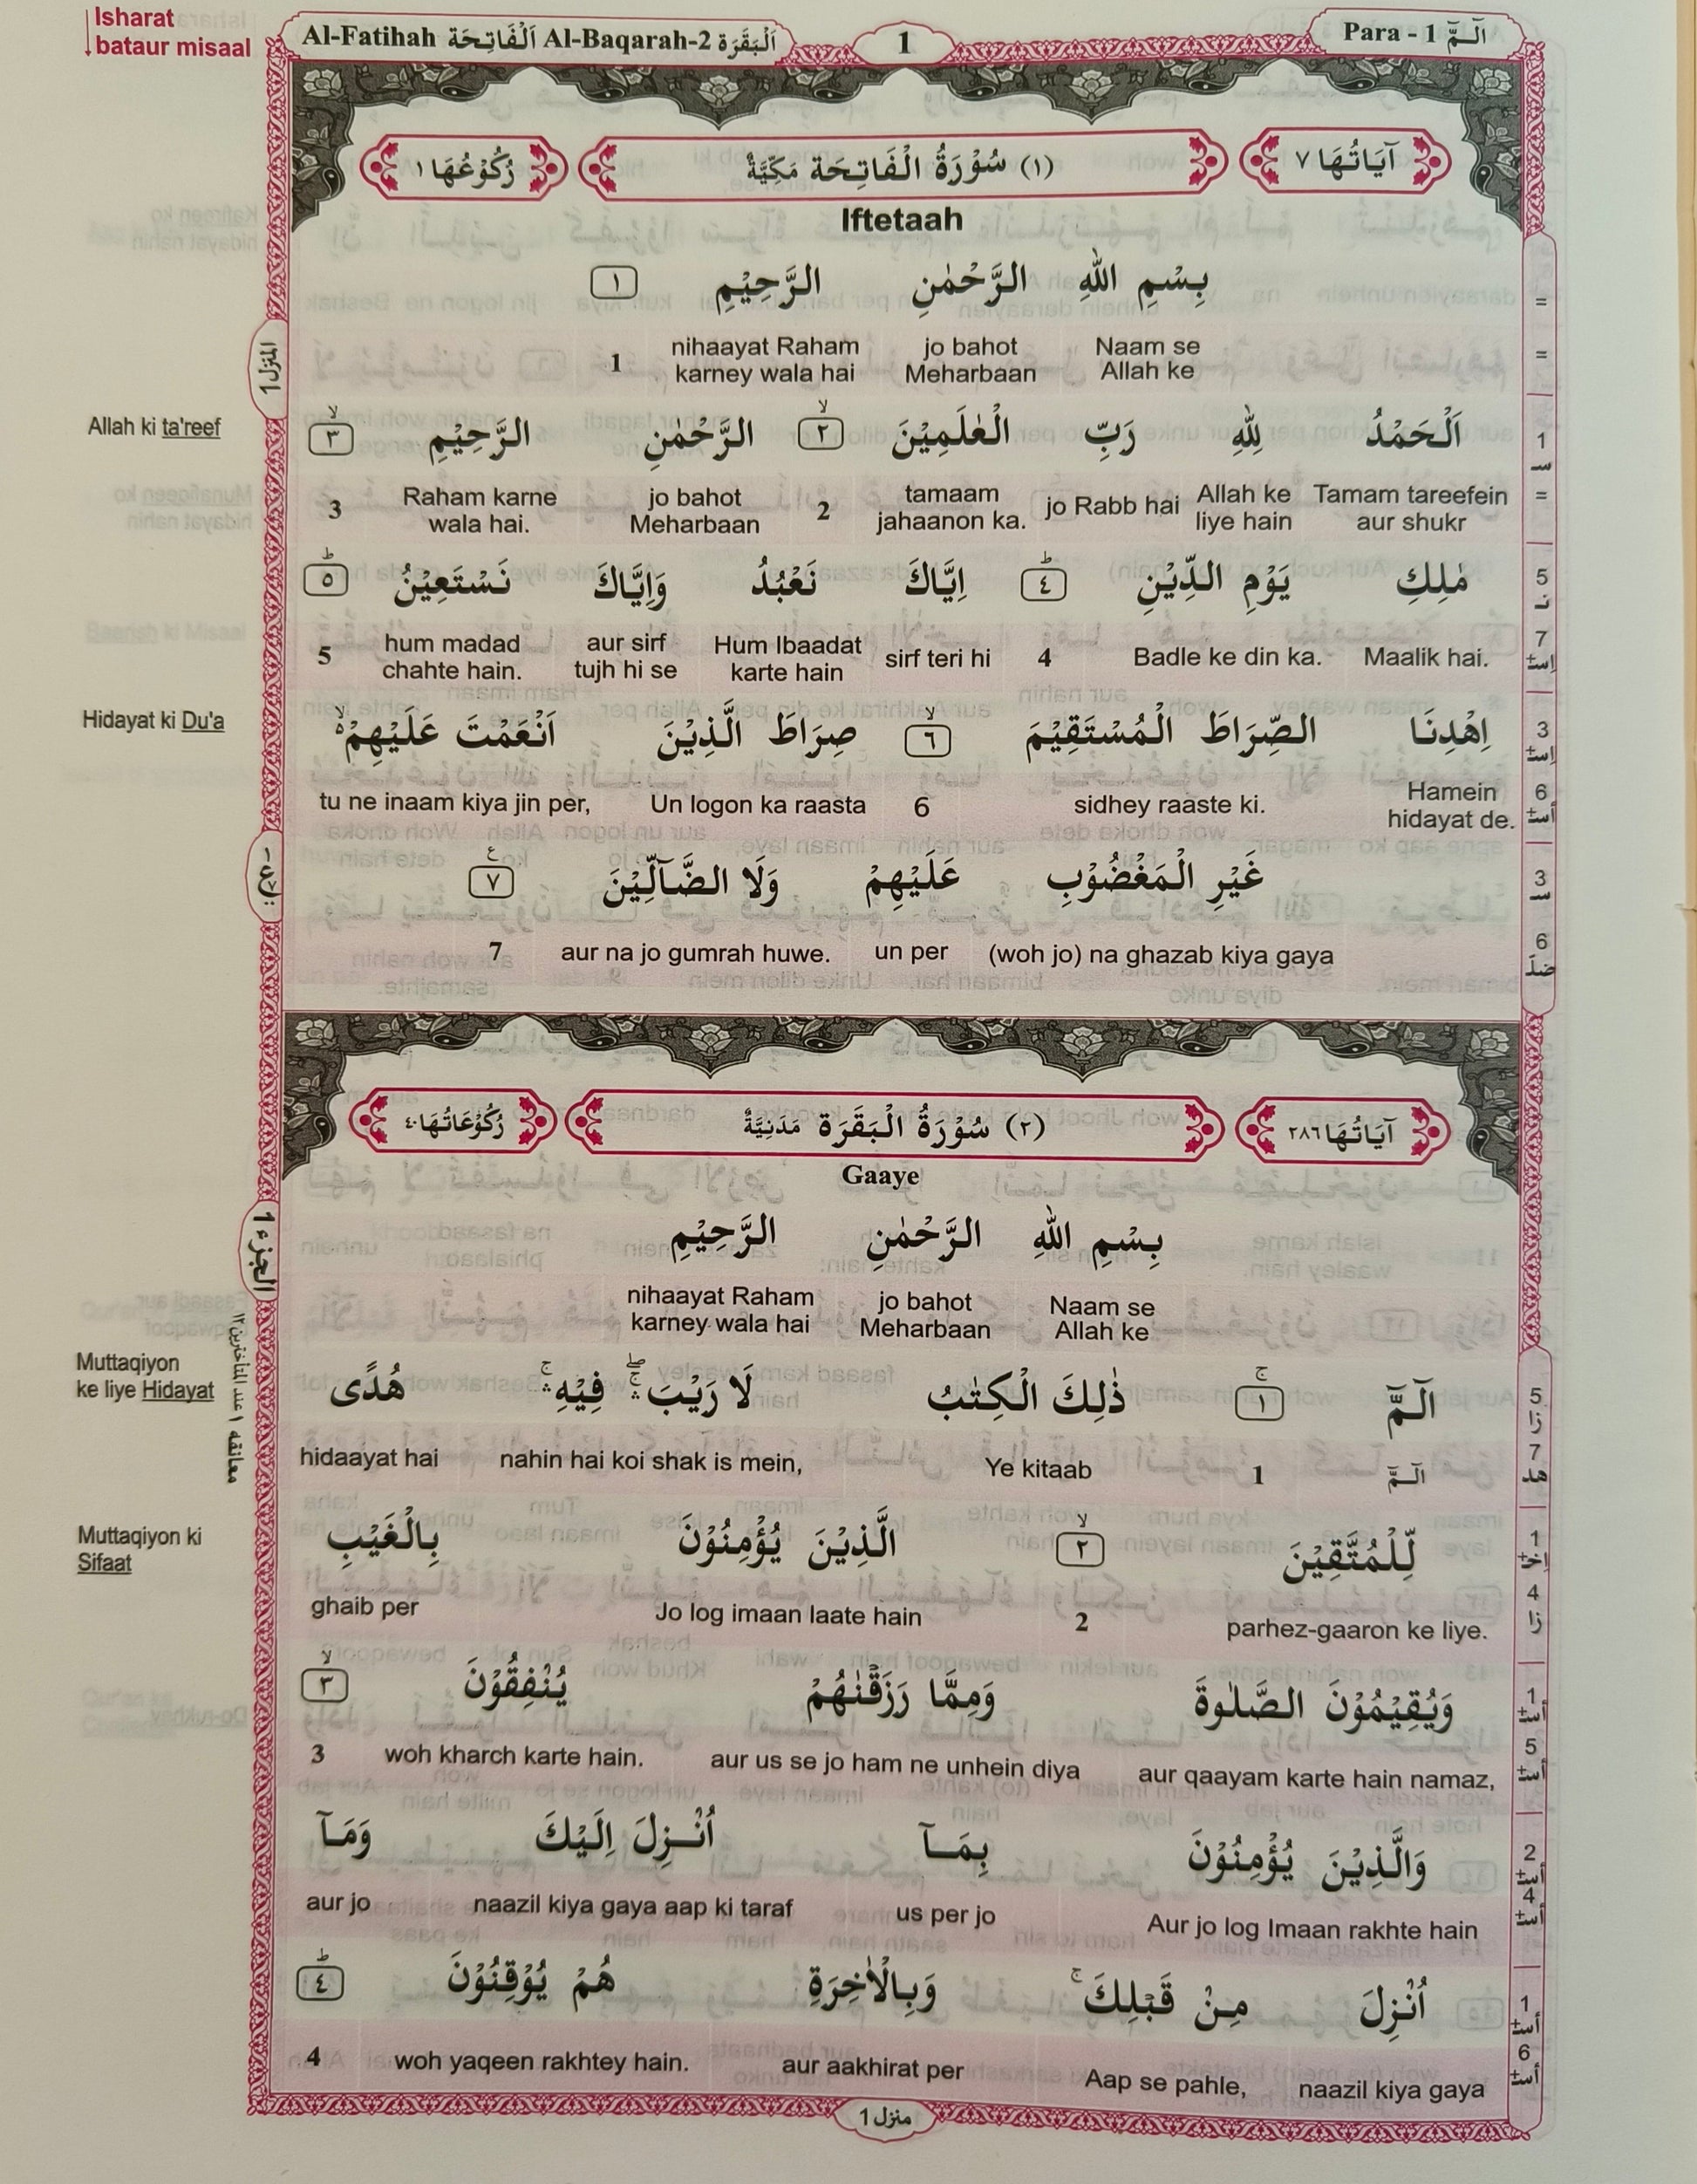 Isharat
bataur misaal
Al-Fatihah اَلْفَاتِحَة Al-Baqarah-2 اَلْبَقَرَة
1
Para - 1 الٓـمّٓ
اٰيَاتُهَا ٧
(١) سُوْرَةُ الْفَاتِحَة مَكِّيَّةٌ
رُكُوْعُهَا ١
Iftetaah
بِسْمِ اللهِ الرَّحْمٰنِ الرَّحِيْمِ ١
Naam se Allah ke jo bahot Meharbaan nihaayat Raham karney wala hai 1
Allah ki ta'reef
اَلْحَمْدُ لِلّٰهِ رَبِّ الْعٰلَمِيْنَ ٢ الرَّحْمٰنِ الرَّحِيْمِ ٣
Tamam tareefein aur shukr Allah ke liye hain jo Rabb hai tamaam jahaanon ka. 2 jo bahot Meharbaan Raham karne wala hai. 3
مٰلِكِ يَوْمِ الدِّيْنِ ٤ اِيَّاكَ نَعْبُدُ وَاِيَّاكَ نَسْتَعِيْنُ ٥
Maalik hai. Badle ke din ka. 4 sirf teri hi Hum Ibaadat karte hain aur sirf tujh hi se hum madad chahte hain. 5
Hidayat ki Du'a
اِهْدِنَا الصِّرَاطَ الْمُسْتَقِيْمَ ٦ صِرَاطَ الَّذِيْنَ اَنْعَمْتَ عَلَيْهِمْ
Hamein hidayat de. sidhey raaste ki. 6 Un logon ka raasta tu ne inaam kiya jin per,
غَيْرِ الْمَغْضُوْبِ عَلَيْهِمْ وَلَا الضَّآلِّيْنَ ٧
(woh jo) na ghazab kiya gaya un per aur na jo gumrah huwe. 7
اٰيَاتُهَا ٢٨٦
(٢) سُوْرَةُ الْبَقَرَة مَدَنِيَّةٌ
رُكُوْعَاتُهَا ٤٠
Gaaye
بِسْمِ اللهِ الرَّحْمٰنِ الرَّحِيْمِ
Naam se Allah ke jo bahot Meharbaan nihaayat Raham karney wala hai
Muttaqiyon
ke liye Hidayat
الٓـمّٓ ١ ذٰلِكَ الْكِتٰبُ لَا رَيْبَ فِيْهِ هُدًى
الٓـمّٓ 1 Ye kitaab nahin hai koi shak is mein, hidaayat hai
Muttaqiyon ki
Sifaat
لِّلْمُتَّقِيْنَ ٢ الَّذِيْنَ يُؤْمِنُوْنَ بِالْغَيْبِ
parhez-gaaron ke liye. 2 Jo log imaan laate hain ghaib per
وَيُقِيْمُوْنَ الصَّلٰوةَ وَمِمَّا رَزَقْنٰهُمْ يُنْفِقُوْنَ ٣
aur qaayam karte hain namaz, aur us se jo ham ne unhein diya woh kharch karte hain. 3
وَالَّذِيْنَ يُؤْمِنُوْنَ بِمَآ اُنْزِلَ اِلَيْكَ وَمَآ
Aur jo log Imaan rakhte hain us per jo naazil kiya gaya aap ki taraf aur jo
اُنْزِلَ مِنْ قَبْلِكَ وَبِالْاٰخِرَةِ هُمْ يُوْقِنُوْنَ ٤
naazil kiya gaya Aap se pahle, aur aakhirat per woh yaqeen rakhtey hain. 4
المنزل 1
الجزء 1
معانقه ١ عند المتأخرين ١٢
منزل 1